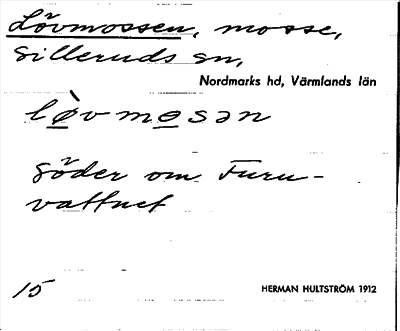 Lövmossen, mosse,
Silleruds sn,
Nordmarks hd, Värmlands län
lò̤vmo̤sən
söder om Furu-
vattnet
15 HERMAN HULTSTRÖM 1912